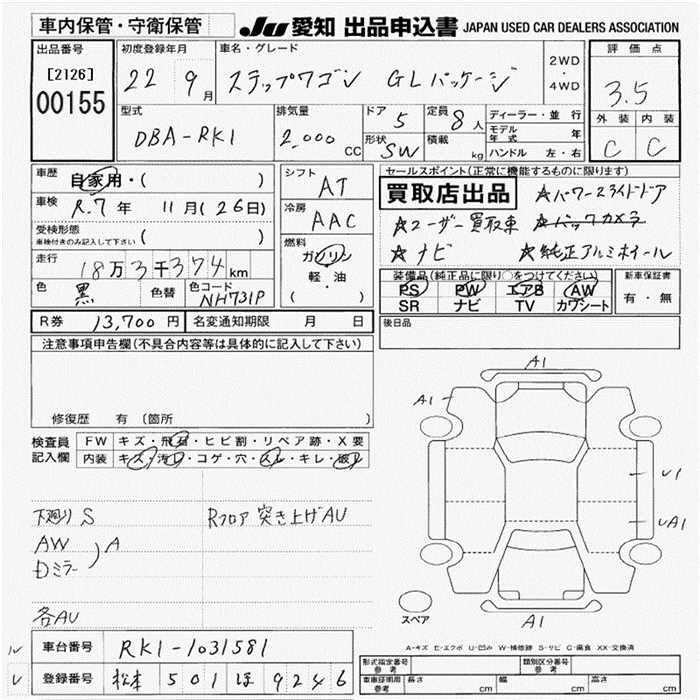 車内保管・守衛保管
JU 愛知 出品申込書 JAPAN USED CAR DEALERS ASSOCIATION
出品番号
[2126]
00155
初度登録年月
22 9月
車名・グレード
ステップワゴン GLパッケージ
2WD
・
4WD
評価点
3.5
外装 内装
C C
型式
DBA-RK1
排気量
2,000 CC
ドア 5
形状 SW
定員 8人
積載 kg
ディーラー・並行
モデル年式 年
ハンドル 左・右
車歴 自家用・( )
車検 R.7年 11月(26日)
受検形態
車検付きのみ記入して下さい ( )
走行 18万3千374km
色 黒 色替 色コード NH731P
シフト AT
冷房 AAC
燃料
ガソリン
軽・油
( )
セールスポイント(正常に機能するものに限ります)
買取店出品 ☆パワースライドドア
☆ユーザー買取車 ☆バックカメラ
☆ナビ ☆純正アルミホイール
装備品(純正品に限り○をつけてください) 新車保証書
PS PW エアB AW
SR ナビ TV カワシート
有・無
R券 13,700円 名変通知期限 月 日
後日品
注意事項申告欄(不具合内容等は具体的に記入して下さい)
修復歴 有 〔箇所 〕
検査員記入欄
FW キズ・飛石・ヒビ割・リペア跡・X要
内装 キズ・汚レ・コゲ・穴・スレ・キレ・破レ
下廻りS Rフロア突き上げAU
AW
Dミラー )A
各AU
A1
A1
U1
UA1
A1
スペア
車台番号 RK1-1031581
登録番号 松本 501 ほ 9246
A-キズ E-エクボ U-凹み W-補修跡 S-サビ C-腐食 XX-交換済
形式指定番号 参考 類別区分番号 参考
車庫証明用 参考 長さ cm 幅 cm 高さ cm